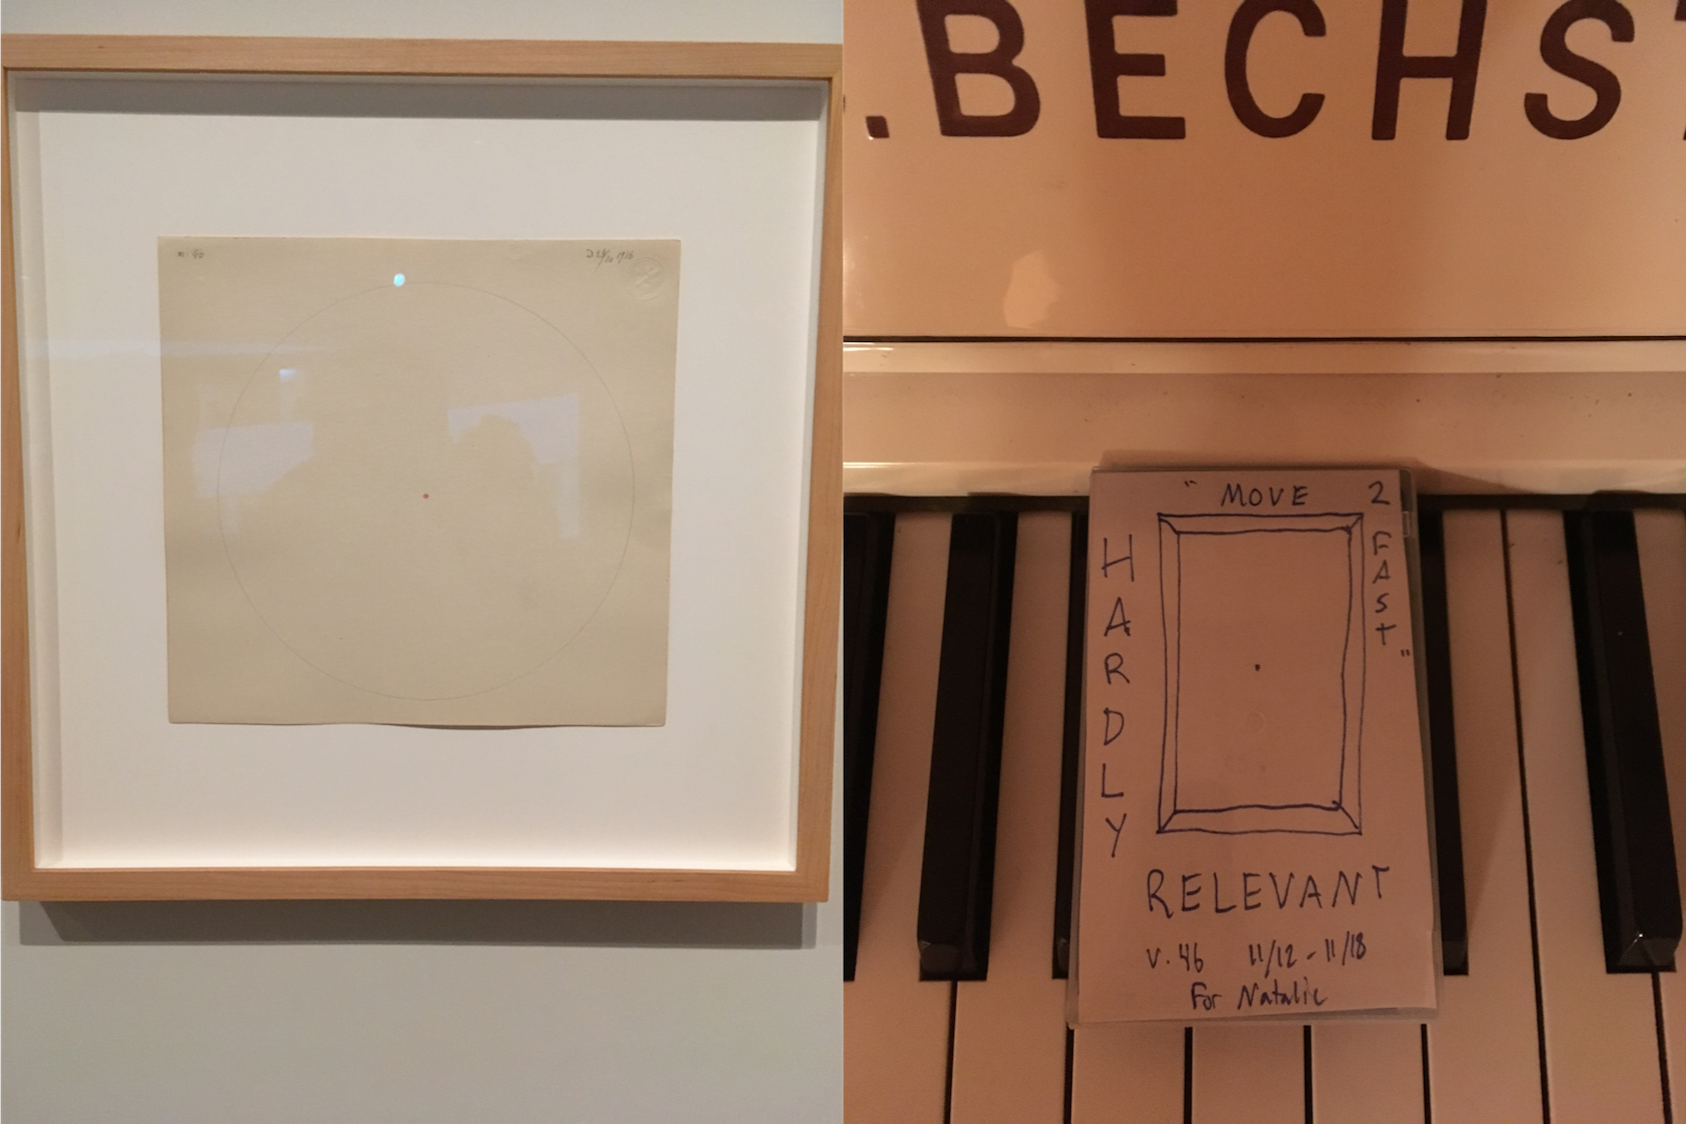 .BECHS
"MOVE 2
FAST"
HARDLY
RELEVANT
v.46 11/12-11/18
For Natalie